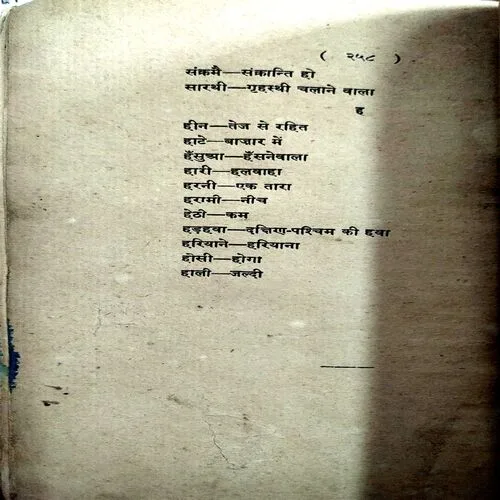 ( २५८ )
संक्रमै—संक्रान्ति हो
सारथी—गृहस्थी चलाने वाला
ह
हीन—तेज से रहित
हाटे—बाज़ार में
हँसुआ—हँसनेवाला
हारी—हलवाहा
हरनी—एक तारा
हरामी—नीच
हेठी—कम
हड़हवा—दक्षिण-पश्चिम की हवा
हरियाने—हरियाना
होसी—होगा
हाली—जल्दी